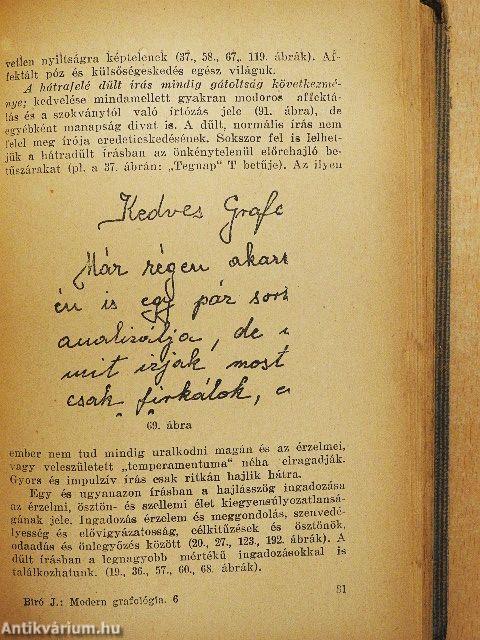 vetlen nyiltságra képtelenek (37., 58., 67., 119. ábrák). Af-
fektált póz és külsőségeskedés egész világuk.
A hátrafelé dűlt írás mindig gátoltság következmé-
nye; kedvelése mindamellett gyakran modoros affektá-
lás és a szokványtól való irtózás jele (91. ábra), de
egyébként manapság divat is. A dűlt, normális írás nem
felel meg írója eredetieskedésének. Sokszor fel is lelhet-
jük a hátradűlt írásban az önkénytelenül előrehajló be-
tűszárakat (pl. a 37. ábrán: „Tegnap" T betűje). Az ilyen
Kedves Grafo
Már régen akart
én is egy pár sort
analizálja, de
mit irjak most
csak firkálok,
69. ábra
ember nem tud mindig uralkodni magán és az érzelmei,
vagy veleszületett „temperamentuma" néha elragadják.
Gyors és impulzív írás csak ritkán hajlik hátra.
Egy és ugyanazon írásban a hajlásszög ingadozása
az érzelmi, ösztön- és szellemi élet kiegyensúlyozatlansá-
gának jele. Ingadozás érzelem és meggondolás, szenvedé-
lyesség és elővigyázatosság, célkitűzések és ösztönök,
odaadás és önlegyőzés között (20., 27., 123., 192. ábrák). A
dűlt írásban a legnagyobb mértékű ingadozásokkal is
találkozhatunk. (19., 36., 57., 60., 68. ábrák).
Biró J.: Modern grafológia. 6
81
Antikvárium.hu